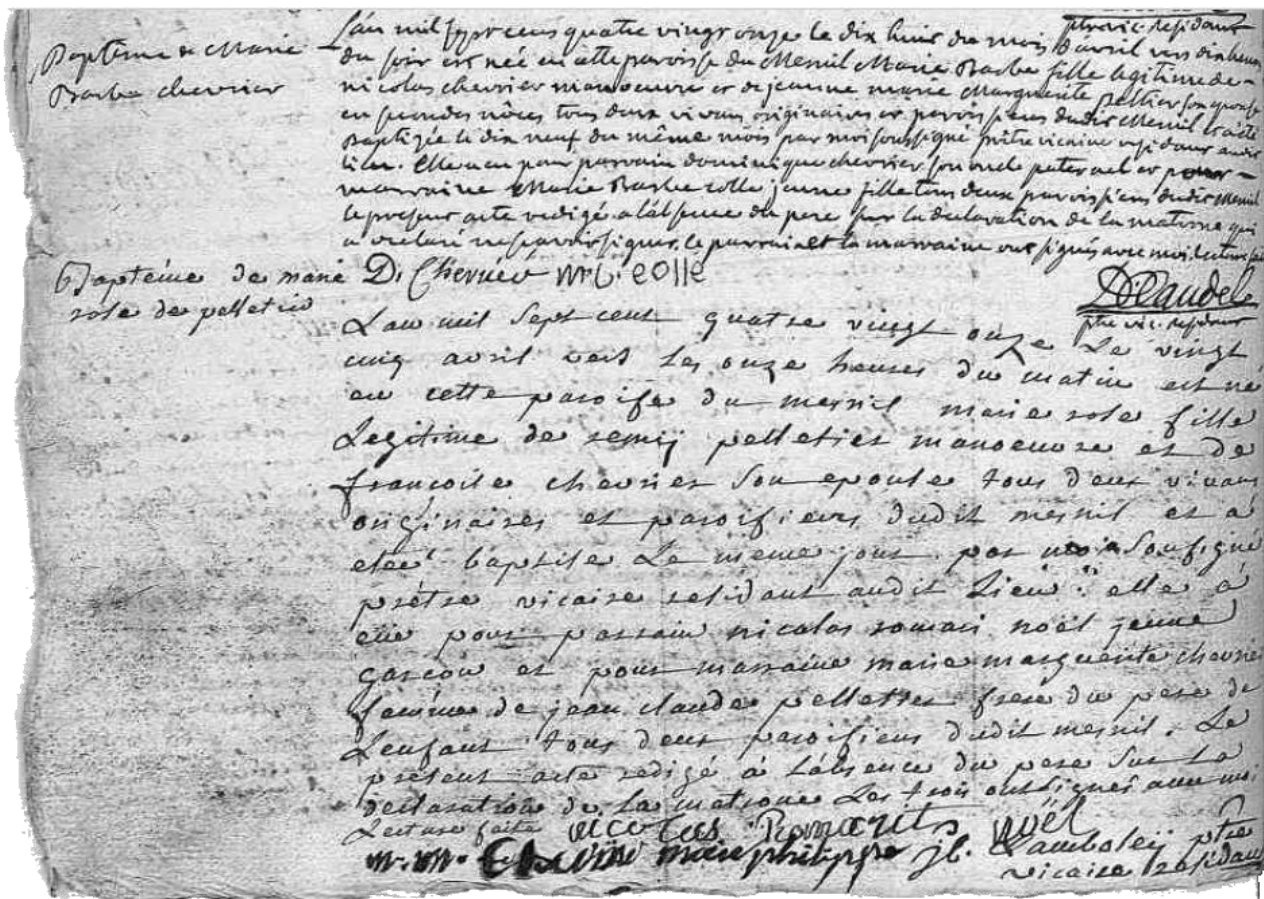 ptre vic. residant
Baptême de Marie
Barbe chevrier
L'an mil sept cens quatre vingt onze le dix huit du mois d'avril vers dix heures
du soir est née en cette paroisse du Mesnil Marie Barbe fille legitime de
nicolas chevrier manoeuvre et de jeanne marie Marguerite pelltier son epouse
en secondes nôces tous deux vivans originaires et paroissiens dudit Mesnil et a été
Baptizée le dix neuf du même mois par moi soussigné prêtre vicaire residant audit
lieu. Elle a eu pour parrain dominique chevrier son oncle paternel et pour
marraine Marie Barbe colle jeune fille tous deux paroissiens dudit Mesnil
le present acte redigé a l'absence du pere sur la declaration de la matrone qui
a declaré ne sçavoir signer. le parrain et la marraine ont signés avec moi, lecture faite
D. Chevrier m. b. colle
ptre vic. residant
Baptéme de marie
rose de pelletier
L'an mil sept cent quatre vingt onze Le vingt
cinq avril vers les onze heures du matin est né
en cette paroisse du mesnil marie rose fille
Legitime de remij pelletier manoeuvre et de
francoise chevrier son epouse tous deux vivans
originaires et paroissiens dudit mesnil et a
eteé baptise Le meme jour par moi soussigné
prétre vicaire residant audit Lieu : elle a
eue pour parrain nicolas romari noël jeune
garcon et pour marraine marie marguerite chevrie
femme de jean claude pelletier frere du pere de
L'enfant tous deux paroissiens dudit mesnil. Le
présent acte redigé a L'absence du pere sur La
declaration de La matrone Les trois ont signés avec moi
Lecture faite nicolas Romari noël
m. m. Chevrie marie philippe j b. Lamboleij ptre
vicaire residant